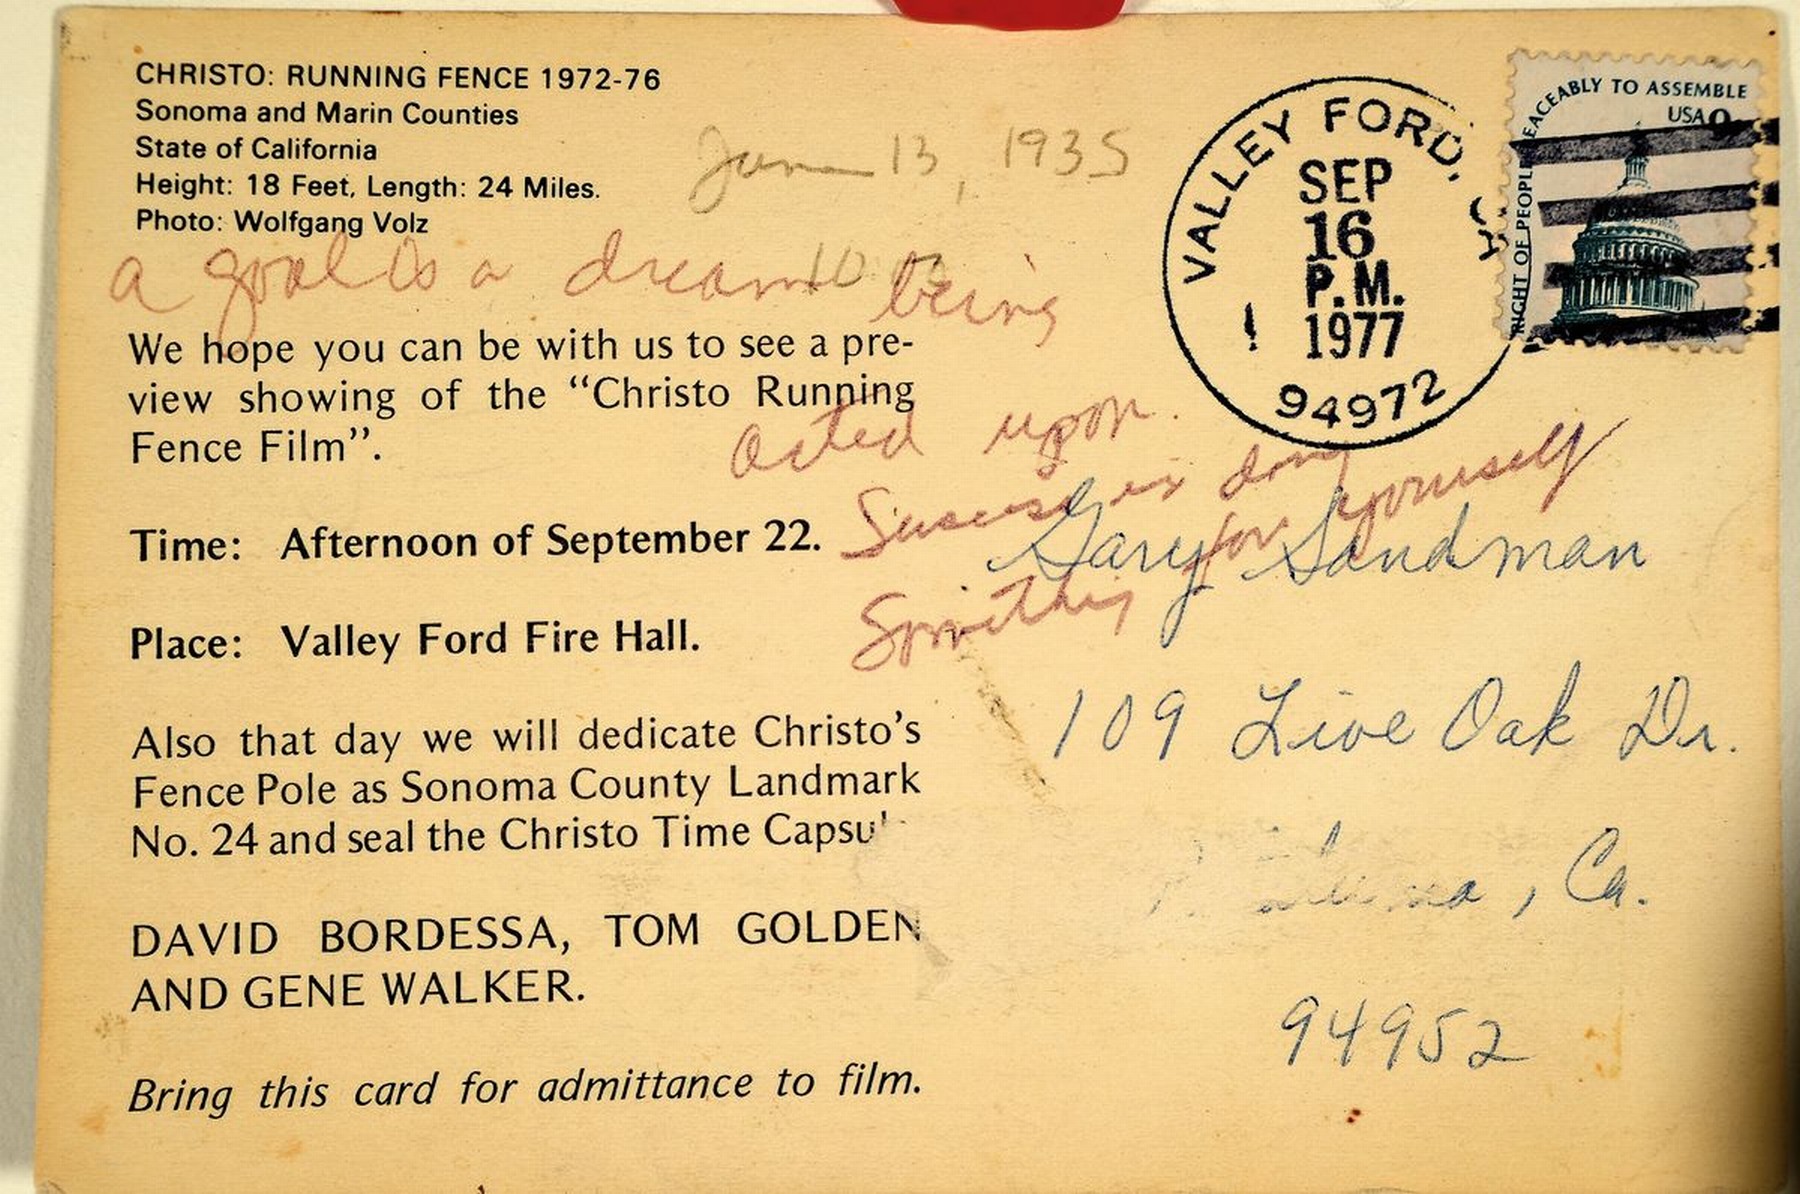 CHRISTO: RUNNING FENCE 1972-76
Sonoma and Marin Counties
State of California
Height: 18 Feet, Length: 24 Miles.
Photo: Wolfgang Volz
June 13, 1935
a goal is a dream being
acted upon.
We hope you can be with us to see a pre-
view showing of the “Christo Running
Fence Film”.
Time: Afternoon of September 22.
Place: Valley Ford Fire Hall.
Also that day we will dedicate Christo’s
Fence Pole as Sonoma County Landmark
No. 24 and seal the Christo Time Capsul
DAVID BORDESSA, TOM GOLDEN
AND GENE WALKER.
Bring this card for admittance to film.
VALLEY FORD, CA
SEP
16
P.M.
1977
94972
RIGHT OF PEOPLE PEACEABLY TO ASSEMBLE
USA 9
is doing
for yourself
Gary Sandman
109 Live Oak Dr.
, Ca.
94952